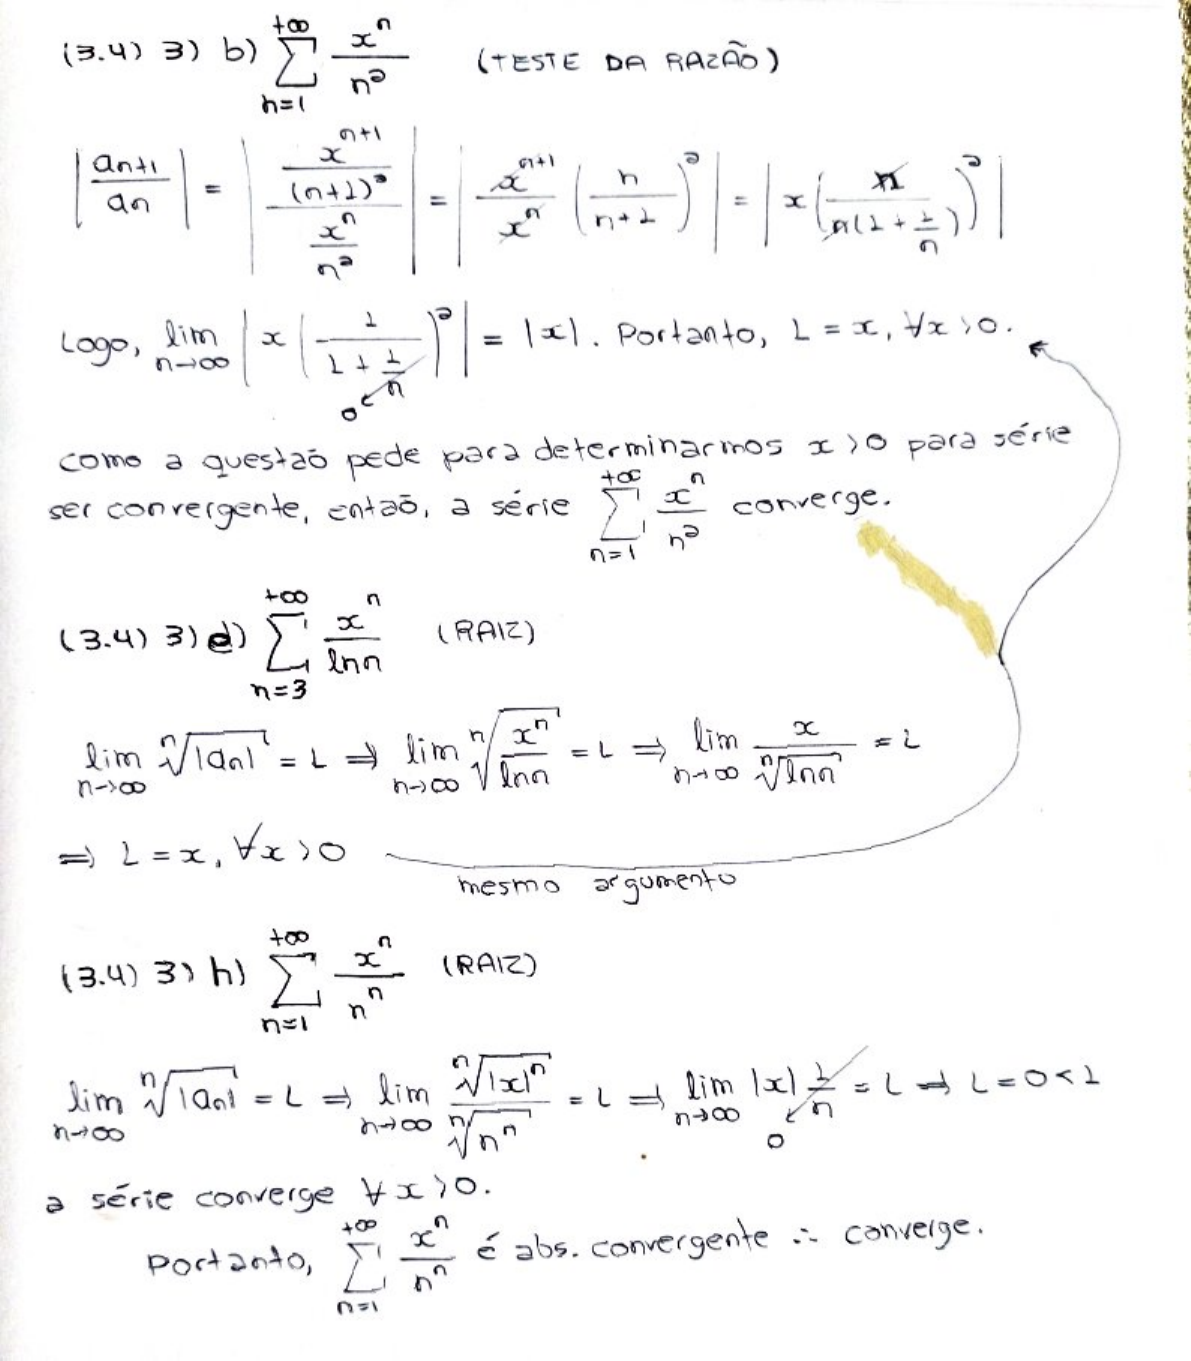 (3.4) 3) b) \sum_{n=1}^{+\infty} \frac{x^n}{n^2} (TESTE DA RAZÃO)
\left|\frac{a_{n+1}}{a_n}\right| = \left|\frac{\frac{x^{n+1}}{(n+1)^2}}{\frac{x^n}{n^2}}\right| = \left|\frac{x^{n+1}}{x^n}\left(\frac{n}{n+1}\right)^2\right| = \left|x\left(\frac{n}{n(1+\frac{1}{n})}\right)^2\right|
Logo, \lim_{n \to \infty} \left|x\left(\frac{1}{1+\frac{1}{n}}\right)^2\right| = |x|. Portanto, L = x, ∀x>0.
0
como a questaõ pede para determinarmos x>0 para série
ser convergente, entaõ, a série \sum_{n=1}^{+\infty} \frac{x^n}{n^2} converge.
(3.4) 3) d) \sum_{n=3}^{+\infty} \frac{x^n}{\ln n} (RAIZ)
\lim_{n \to \infty} \sqrt[n]{|a_n|} = L ⇒ \lim_{n \to \infty} \sqrt[n]{\frac{x^n}{\ln n}} = L ⇒ \lim_{n \to \infty} \frac{x}{\sqrt[n]{\ln n}} = L
⇒ L = x, ∀x>0
mesmo argumento
(3.4) 3) h) \sum_{n=1}^{+\infty} \frac{x^n}{n^n} (RAIZ)
\lim_{n \to \infty} \sqrt[n]{|a_n|} = L ⇒ \lim_{n \to \infty} \frac{\sqrt[n]{|x|^n}}{\sqrt[n]{n^n}} = L ⇒ \lim_{n \to \infty} |x| \frac{1}{n} = L ⇒ L = 0 < 1
0
a série converge ∀x>0.
Portanto, \sum_{n=1}^{+\infty} \frac{x^n}{n^n} é abs. convergente ∴ converge.